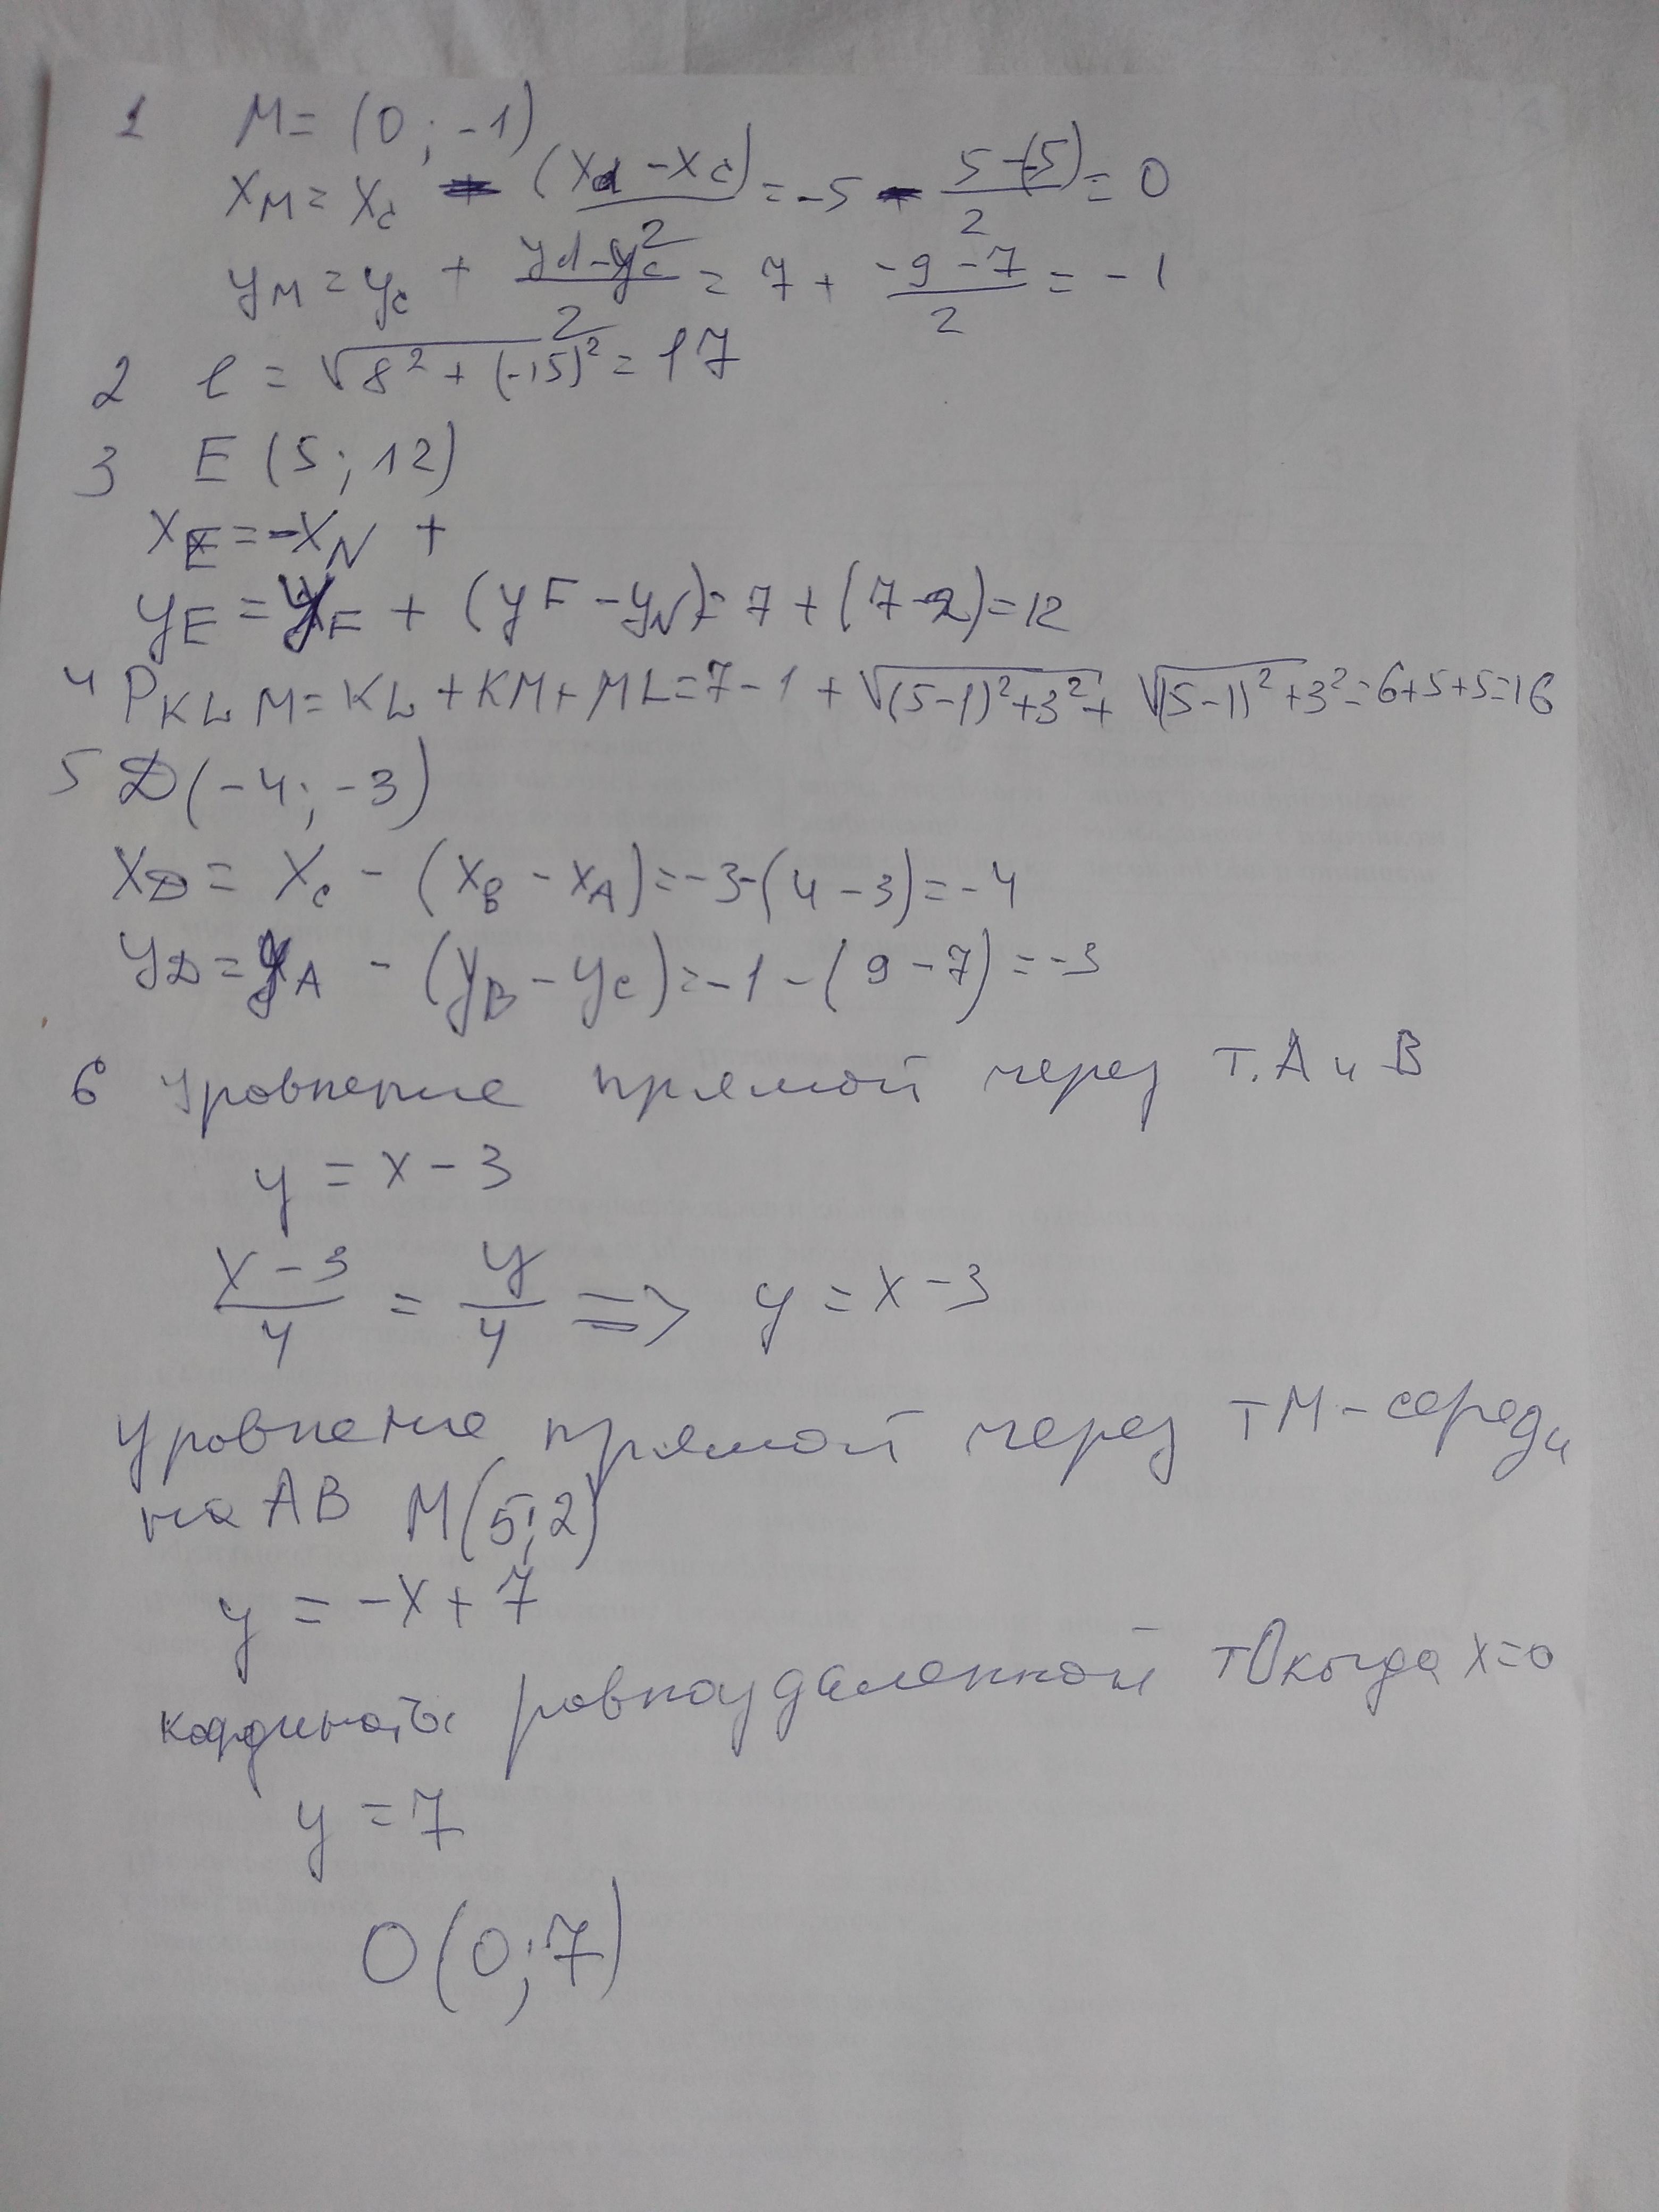 1 M = (0 ; -1)
x_M = x_c + (x_d - x_c)/2 = -5 + (5-(-5))/2 = 0
y_M = y_c + (y_d - y_c)/2 = 7 + (-9 - 7)/2 = -1
2 l = √(8² + (-15)²) = 17
3 E (5 ; 12)
x_E = -x_N +
y_E = y_F + (y_F - y_N) = 7 + (7-2) = 12
4 P_KLM = KL + KM + ML = 7 - 1 + √((5-1)² + 3²) + √((5-1)² + 3²) = 6+5+5=16
5 D (-4 ; -3)
x_D = x_c - (x_B - x_A) = -3-(4-3) = -4
y_D = y_A - (y_B - y_c) = -1 - (9 - 7) = -3
6 уровнение прямой через т. A и B
y = x - 3
(x - 3)/4 = y/4 => y = x - 3
уровнение прямой через т M - середи
на AB M(5;2)
y = -x + 7
координаты ровноудаленной т O когда x=0
y = 7
O (0 ; 7)